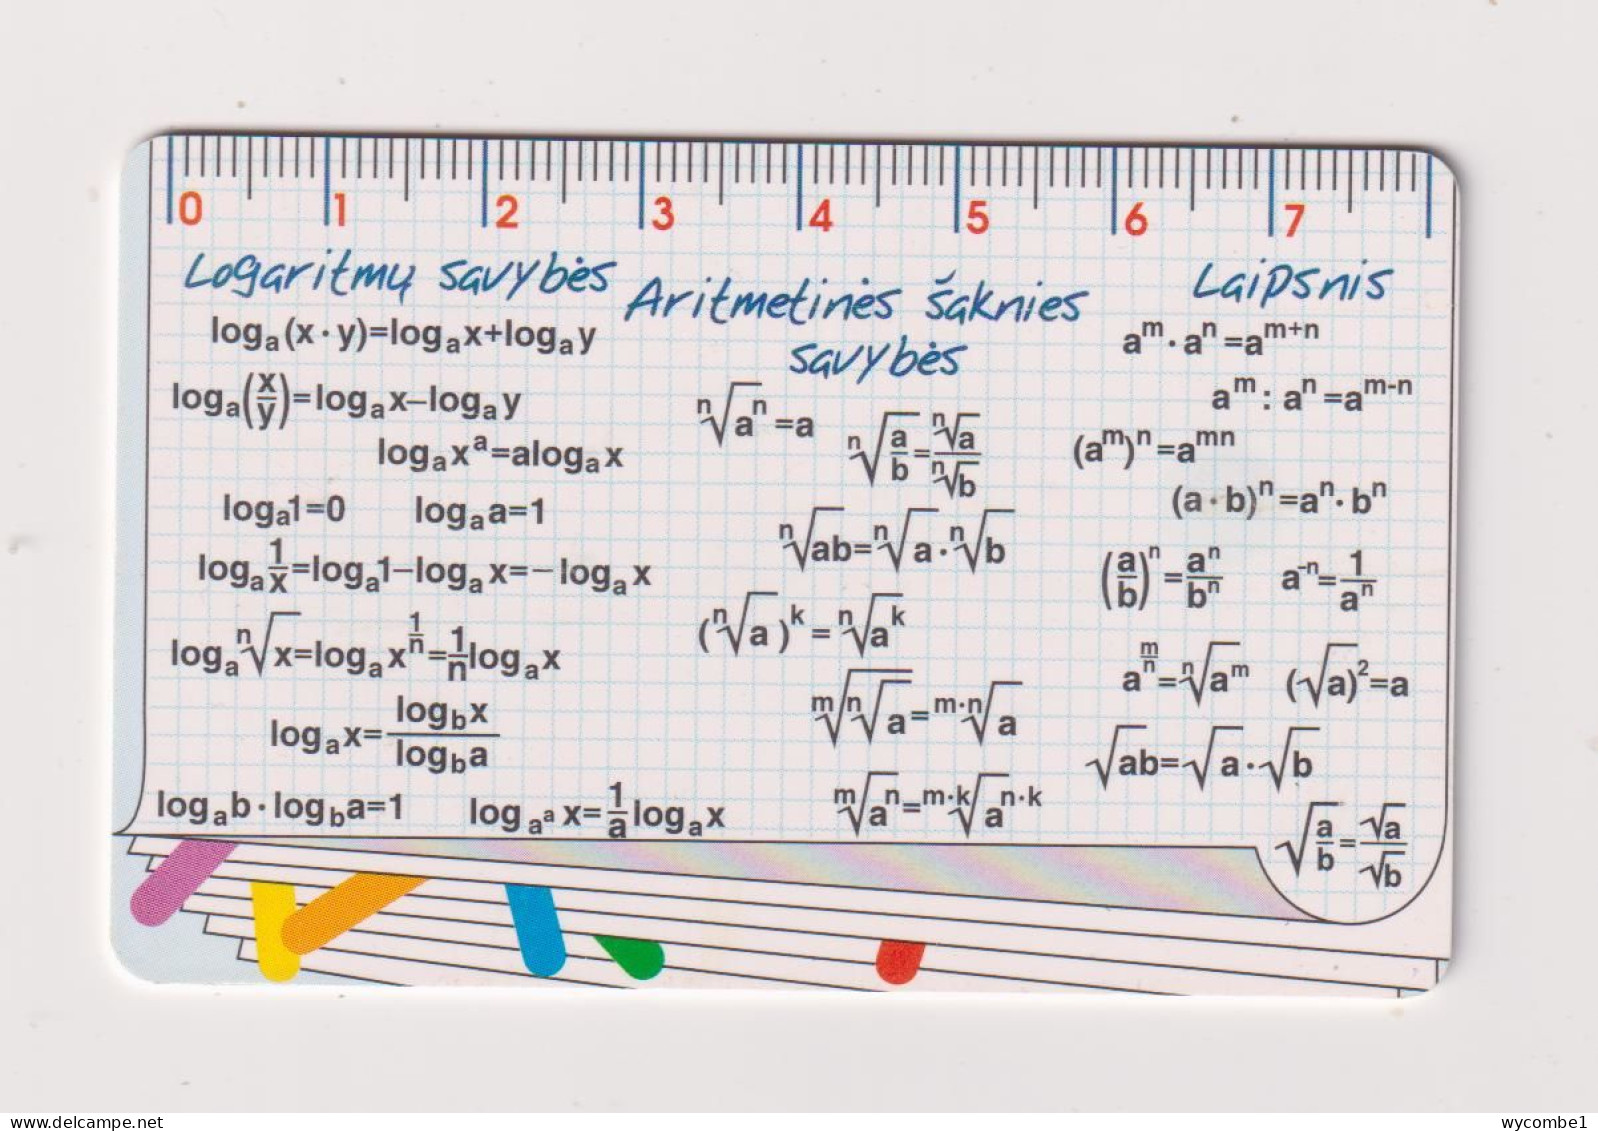 0 1 2 3 4 5 6 7
Logaritmų savybės
logₐ(x · y)=logₐx+logₐy
logₐ(x/y)=logₐx–logₐy
logₐxᵃ=alogₐx
logₐ1=0 logₐa=1
logₐ 1/x=logₐ1–logₐx=–logₐx
logₐ ⁿ√x=logₐx^(1/n)=1/n logₐx
logₐx= log_b x / log_b a
logₐb · log_b a=1 log_(aᵃ) x= 1/a logₐx
Aritmetinės šaknies
savybės
ⁿ√aⁿ =a
ⁿ√(a/b) = ⁿ√a / ⁿ√b
ⁿ√ab=ⁿ√a · ⁿ√b
(ⁿ√a)ᵏ = ⁿ√aᵏ
ᵐ√ⁿ√a = ᵐ·ⁿ√a
ᵐ√aⁿ = ᵐ·ᵏ√aⁿ·ᵏ
Laipsnis
aᵐ · aⁿ =aᵐ⁺ⁿ
aᵐ : aⁿ =aᵐ⁻ⁿ
(aᵐ)ⁿ =aᵐⁿ
(a · b)ⁿ =aⁿ · bⁿ
(a/b)ⁿ = aⁿ/bⁿ a⁻ⁿ= 1/aⁿ
a^(m/n) = ⁿ√aᵐ (√a)²=a
√ab=√a · √b
√(a/b) = √a / √b
wycombe1